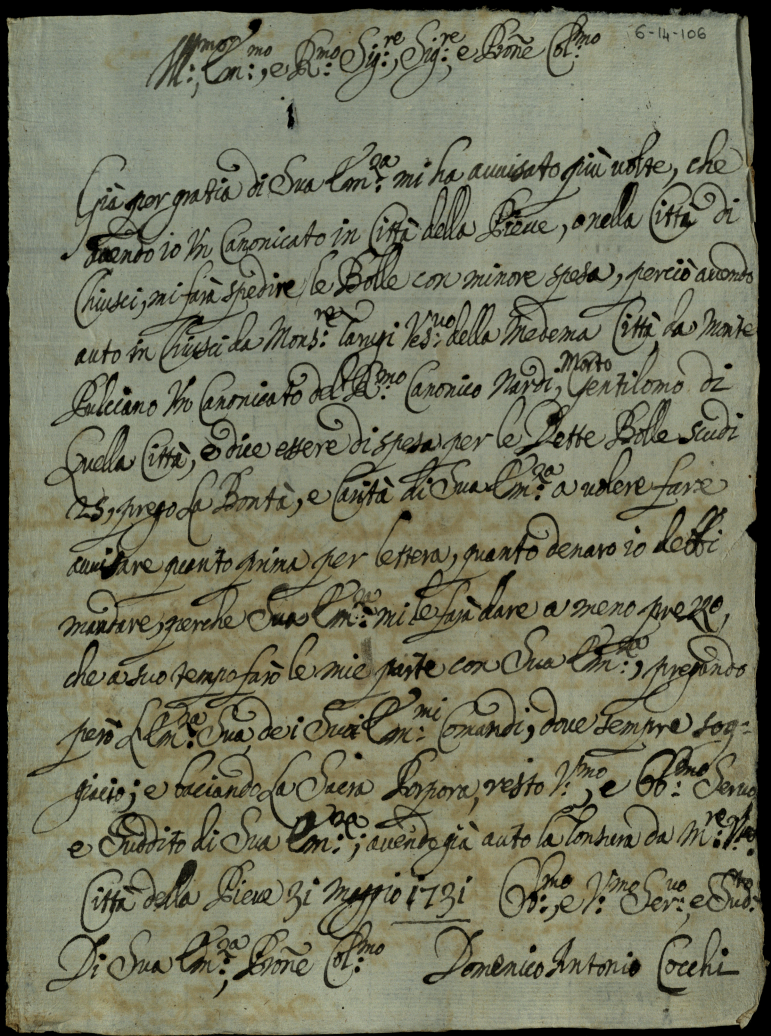 6-14-106
Em:mo, e R:mo Sig:re, Sig:re, e Prõne Col:mo
Già per gratia di Sua Em:za mi ha auuisato più uolte, che
auendo io Vn Canonicato in Città della Pieue, o nella Città di
Chiusci, mi farà spedire le Bolle con minore spesa, perciò auendo
auto in Chiusci da Mons:re Tarugi Ves:uo della Medema Città da Monte
Pulciano Vn Canonicato del R:mo Canonico Nardi, Morto Gentilomo di
Quella Città, e dice essere di spesa per le Dette Bolle scudi
25, prego La Bontà, e Carità di Sua Em:za a uolere fare
auuisare quanto prima per lettera, quanto denaro io debbi
mandare, perche Sua Em:za mi le farà dare a meno prezzo,
che a suo tempo farò le mie parte con Sua Em:za, pregando
però L'Em:za Sua, de i Suoi Em:mi Comandi, doue sempre sog=
giacio; e baciando La Sacra Porpora, resto V:mo, e Ob:mo Seruo
e Suddito di Sua Em:za; auendo già auto la Tonsura da M:re V:uo
Città della Pieue 31 Maggio 1731 Ob:mo, e V:mo Ser:uo, e Sud:to
Di Sua Em:za, Prõne Col:mo Domenico Antonio Cocchi